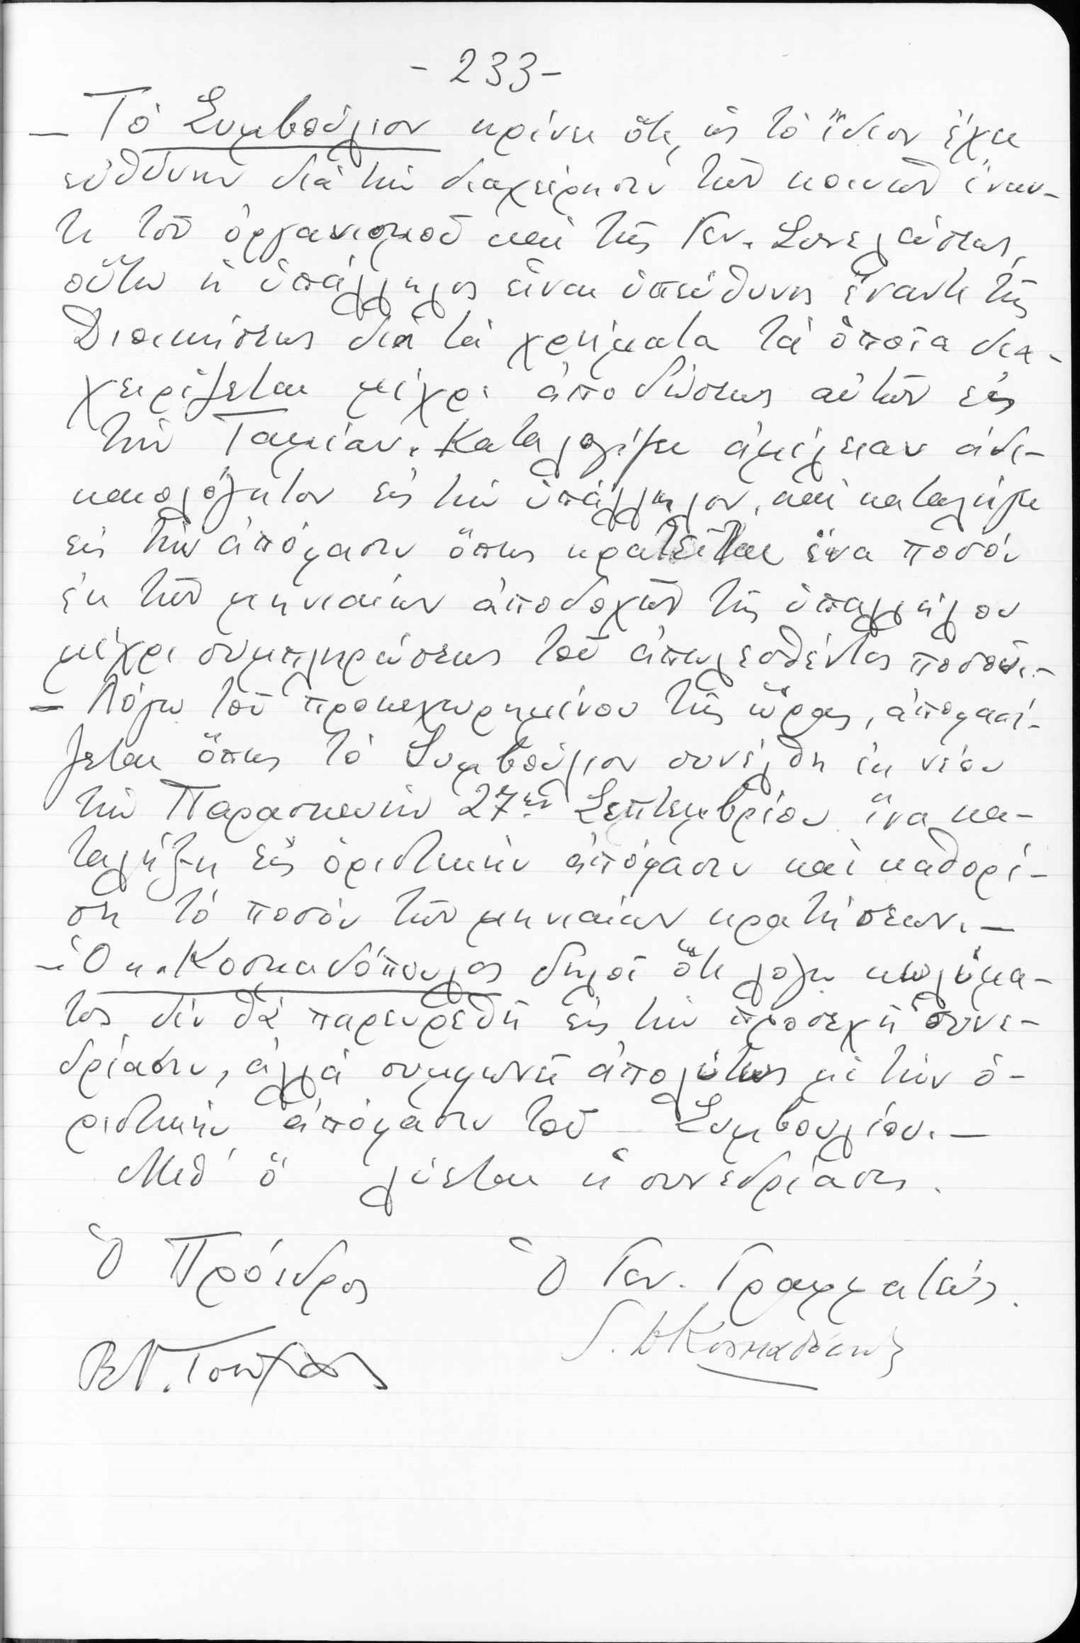 - 233 -
— Τὸ Συμβούλιον κρίνει ὅτι, ὡς τὸ ἴδιον ἔχει
εὐθύνην διὰ τὴν διαχείρησιν τῶν κοινῶν ἔναν-
τι τοῦ ὀργανισμοῦ καὶ τῆς Γεν. Συνελεύσεως,
οὕτω ἡ ὑπάλληλος εἶναι ὑπεύθυνος ἔναντι τῆς
Διοικήσεως διὰ τὰ χρήματα τὰ ὁποῖα δια-
χειρίζεται μέχρι ἀποδώσεως αὐτῶν εἰς
τὴν Ταμίαν. Καταλογίζει ἀμέλειαν ἀδι-
καιολόγητον εἰς τὴν ὑπάλληλον, καὶ καταλήγει
εἰς τὴν ἀπόφασιν ὅπως κρατεῖται ἕνα ποσόν
ἐκ τῶν μηνιαίων ἀποδοχῶν τῆς ὑπαλλήλου
μέχρι συμπληρώσεως τοῦ ἀπωλεσθέντος ποσοῦ.-
— Λόγω τοῦ προκεχωρημένου τῆς ὥρας, ἀποφασί-
ζεται ὅπως τὸ Συμβούλιον συνέλθη ἐκ νέου
τὴν Παρασκευὴν 27ην Σεπτεμβρίου ἵνα κα-
ταλήξη εἰς ὁριστικὴν ἀπόφασιν καὶ καθορί-
ση τὸ ποσόν τῶν μηνιαίων κρατήσεων.—
— Ὁ κ. Κοσκαδόπουλος δηλοῖ ὅτι λόγω κωλύμα-
τος δὲν θὰ παρευρεθῆ εἰς τὴν προσεχῆ συνε-
δρίασιν, ἀλλὰ συμφωνῆ ἀπολύτως μὲ τὴν ὁ-
ριστικὴν ἀπόφασιν τοῦ Συμβουλίου.—
Μεθ' ὅ λύεται ἡ συνεδρίασις.
Ὁ Πρόεδρος Ὁ Γεν. Γραμματεύς.